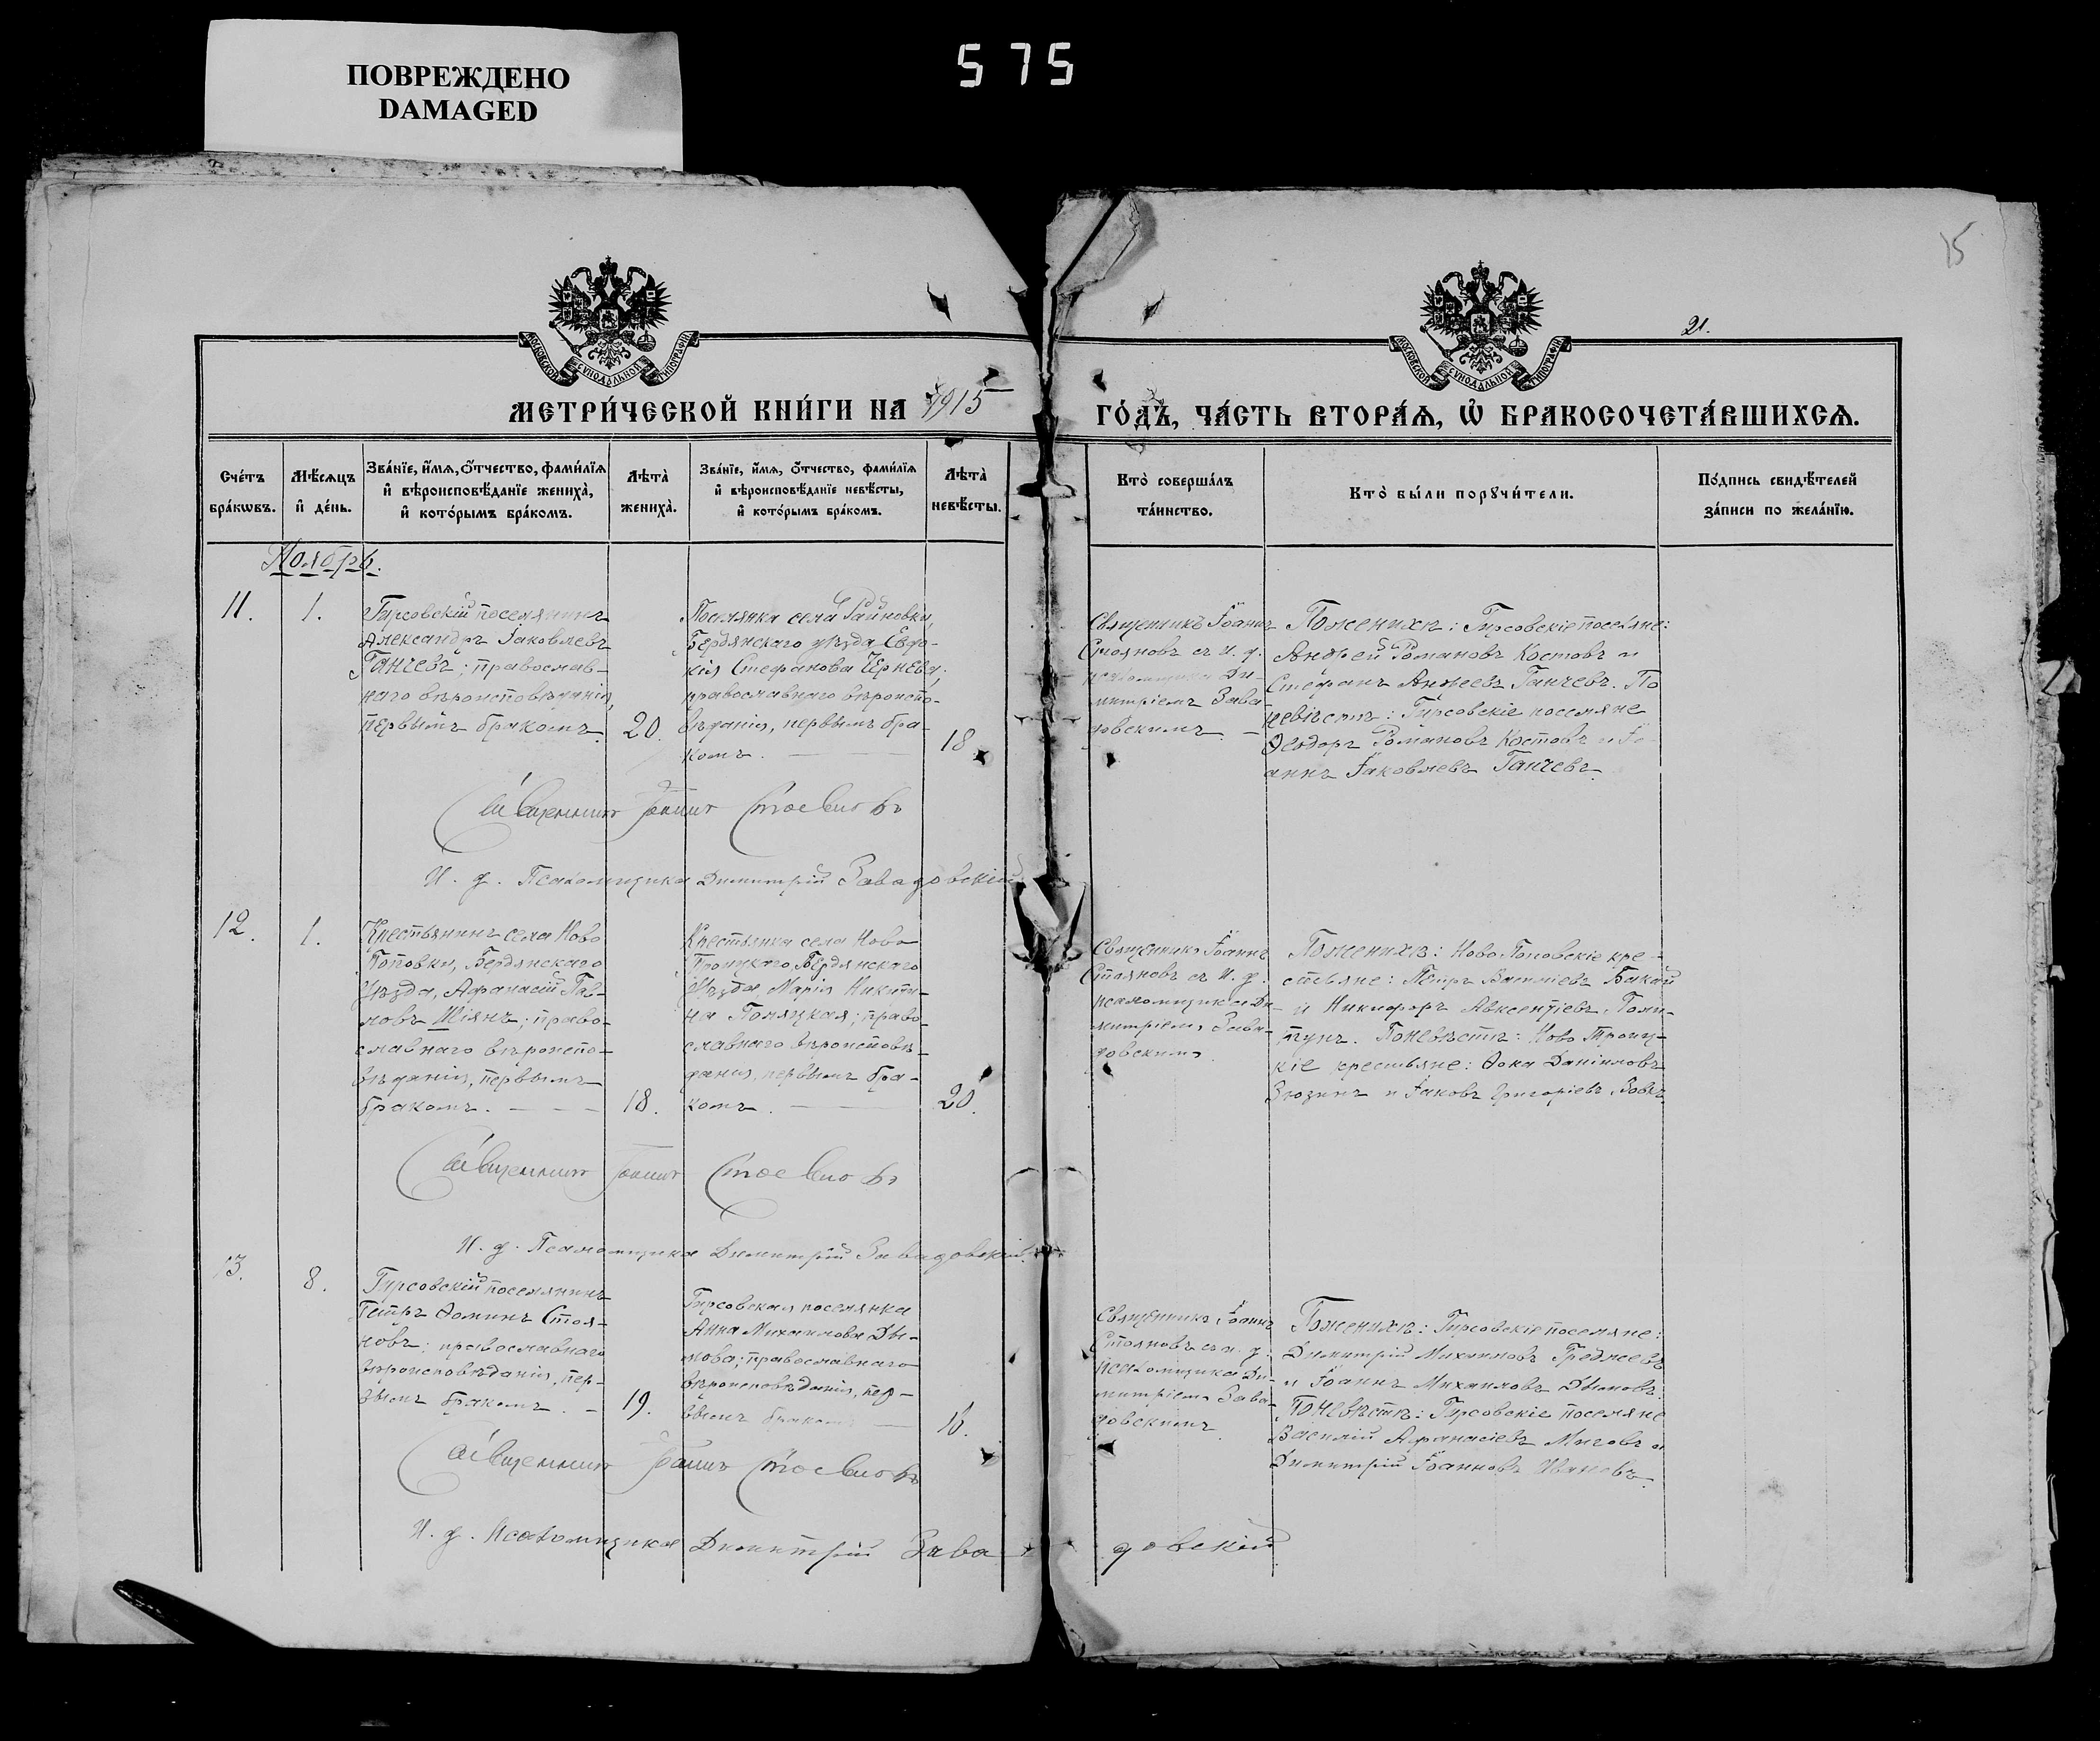 ПОВРЕЖДЕНО
DAMAGED
575
15
21.
МОСКОВСКОЙ СѴНОДАЛЬНОЙ ТИПОГРАФІИ
МОСКОВСКОЙ СѴНОДАЛЬНОЙ ТИПОГРАФІИ
МЕТРИ́ЧЕСКОЙ КНИ́ГИ НА 1915
ГО́ДЪ, ЧА́СТЬ ВТОРА́Ѧ, Ѡ҆ БРАКОСОЧЕТА́ВШИХСѦ.
Сче́тъ
бра́кѡвъ.
Мѣ́сѧцъ
и҆ де́нь.
Зва́нїе, и҆́мѧ, ѻ҆́тчество, фами́лїѧ
и҆ вѣроисповѣ́данїе жениха̀,
и҆ кото́рымъ бра́комъ.
Лѣта̀
жениха̀.
Зва́нїе, и҆́мѧ, ѻ҆́тчество, фами́лїѧ
и҆ вѣроисповѣ́данїе невѣ́сты,
и҆ кото́рымъ бра́комъ.
Лѣта̀
невѣ́сты.
Кто̀ соверша́лъ
та́инство.
Кто̀ бы́ли порꙋчи́тели.
По́дпись свидѣ́телей
за́писи по жела́нїю.
Ноябрь.
11.
1.
Гирсовскій поселянинъ
Александръ Іаковлевъ
Ганчевъ; православ-
наго вѣроисповѣданія,
первымъ бракомъ.
20.
Поселянка села Райновки,
Бердянскаго уѣзда, Евдо-
кія Стефанова Чернева;
православнаго вѣроиспо-
вѣданія, первымъ бра-
комъ.
18.
Священникъ Іоаннъ
Стояновъ съ и. д.
псаломщика Ди-
митріемъ Зава-
довскимъ.
По женихѣ: Гирсовскіе поселяне:
Андрей Романовъ Костовъ и
Стефанъ Ганчевъ. По
невѣстѣ: Гирсовскіе поселяне
Ѳеодоръ Романовъ Костовъ и Іо-
аннъ Іаковлевъ Ганчевъ.
Священникъ Іоаннъ Стояновъ
И. д. Псаломщика Димитрій Завадовскій
12.
1.
Крестьянинъ села Ново
Поповки, Бердянскаго
Уѣзда, Афанасій Пав-
ловъ Шіянъ; право-
славнаго вѣроиспо-
вѣданія, первымъ
бракомъ.
18.
Крестьянка села Ново
Троицкаго, Бердянскаго
Уѣзда, Марія Никити-
на ; право-
славнаго вѣроисповѣ-
данія, первымъ бра-
комъ.
20.
Священникъ Іоаннъ
Стояновъ съ И. д.
псаломщика Ди-
митріемъ Зава-
довскимъ.
По женихѣ: Ново Поповскіе кре-
стьяне: Петръ Василіевъ Бакай
и Никифоръ Авксентіевъ
По невѣстѣ: Ново Троиц-
кіе крестьяне: Ѳока Даніиловъ
Зюзинъ и Іаковъ Григоріевъ Вовкъ
Священникъ Іоаннъ Стояновъ
И. д. Псаломщика Димитрій Завадовскій.
13.
8.
Гирсовскій поселянинъ
Петръ Ѳоминъ Стоя-
новъ; православнаго
вѣроисповѣданія, пер-
вымъ бракомъ.
19.
Гирсовская поселянка
Анна Михаилова Ды-
мова; православнаго
вѣроисповѣданія, пер-
вымъ бракомъ
Священникъ Іоаннъ
Стояновъ съ и. д.
псаломщика Ди-
митріемъ Зава-
довскимъ.
По женихѣ: Гирсовскіе поселяне:
Димитрій Михаиловъ
и Іоаннъ Михаиловъ Дымовъ.
По невѣстѣ: Гирсовскіе поселяне
Василій Афанасіевъ Митовъ и
Димитрій Іоанновъ Ивановъ.
Священникъ Іоаннъ Стояновъ
И. д. Псаломщика Димитрій Завадовскій